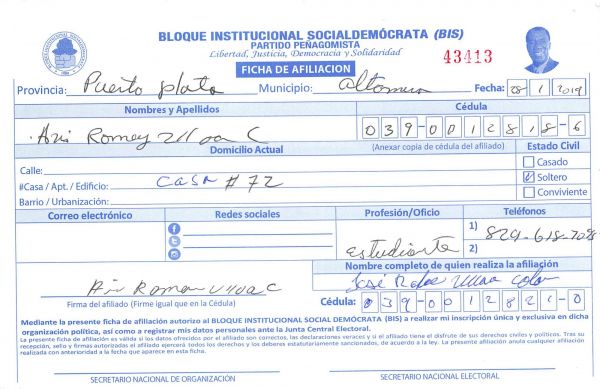 BLOQUE INSTITUCIONAL SOCIALDEMÓCRATA (BIS)
PARTIDO PEÑAGOMISTA
Libertad, Justicia, Democracia y Solidaridad
43413
FICHA DE AFILIACION
Provincia: Puerto plata Municipio: Altamira Fecha: 08 1 2019
Nombres y Apellidos Cédula
Romey Ulloa C 039-0012818-6
Domicilio Actual (Anexar copia de cédula del afiliado) Estado Civil
Calle: Casado
#Casa / Apt. / Edificio: casa #72 Soltero
Barrio / Urbanización: Conviviente
Correo electrónico Redes sociales Profesión/Oficio Teléfonos
1) 829-618-708
estudiante 2)
Nombre completo de quien realiza la afiliación
Ulloa C José Ulloa Colon
Firma del afiliado (Firme igual que en la Cédula) Cédula: 039-0012821-0
Mediante la presente ficha de afiliación autorizo al BLOQUE INSTITUCIONAL SOCIAL DEMÓCRATA (BIS) a realizar mi inscripción única y exclusiva en dicha
organización política, así como a registrar mis datos personales ante la Junta Central Electoral.
La presente ficha de afiliación es válida si los datos ofrecidos por el afiliado son correctos, las declaraciones veraces y si el titular disfruta de sus derechos civiles y políticos. Tras su
recepción, sello y firmas autorizadas el afiliado ejercerá todos los derechos y los deberes estatutariamente sancionados, de acuerdo a la ley. La presente afiliación anula cualquier afiliación
realizada con anterioridad a la fecha que aparece en esta ficha.
SECRETARIO NACIONAL DE ORGANIZACIÓN SECRETARIO NACIONAL ELECTORAL